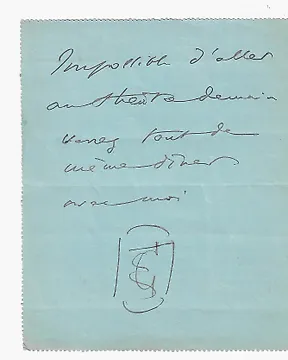 Impossible d'aller
au théâtre demain
venez tout de
même dîner
avec moi